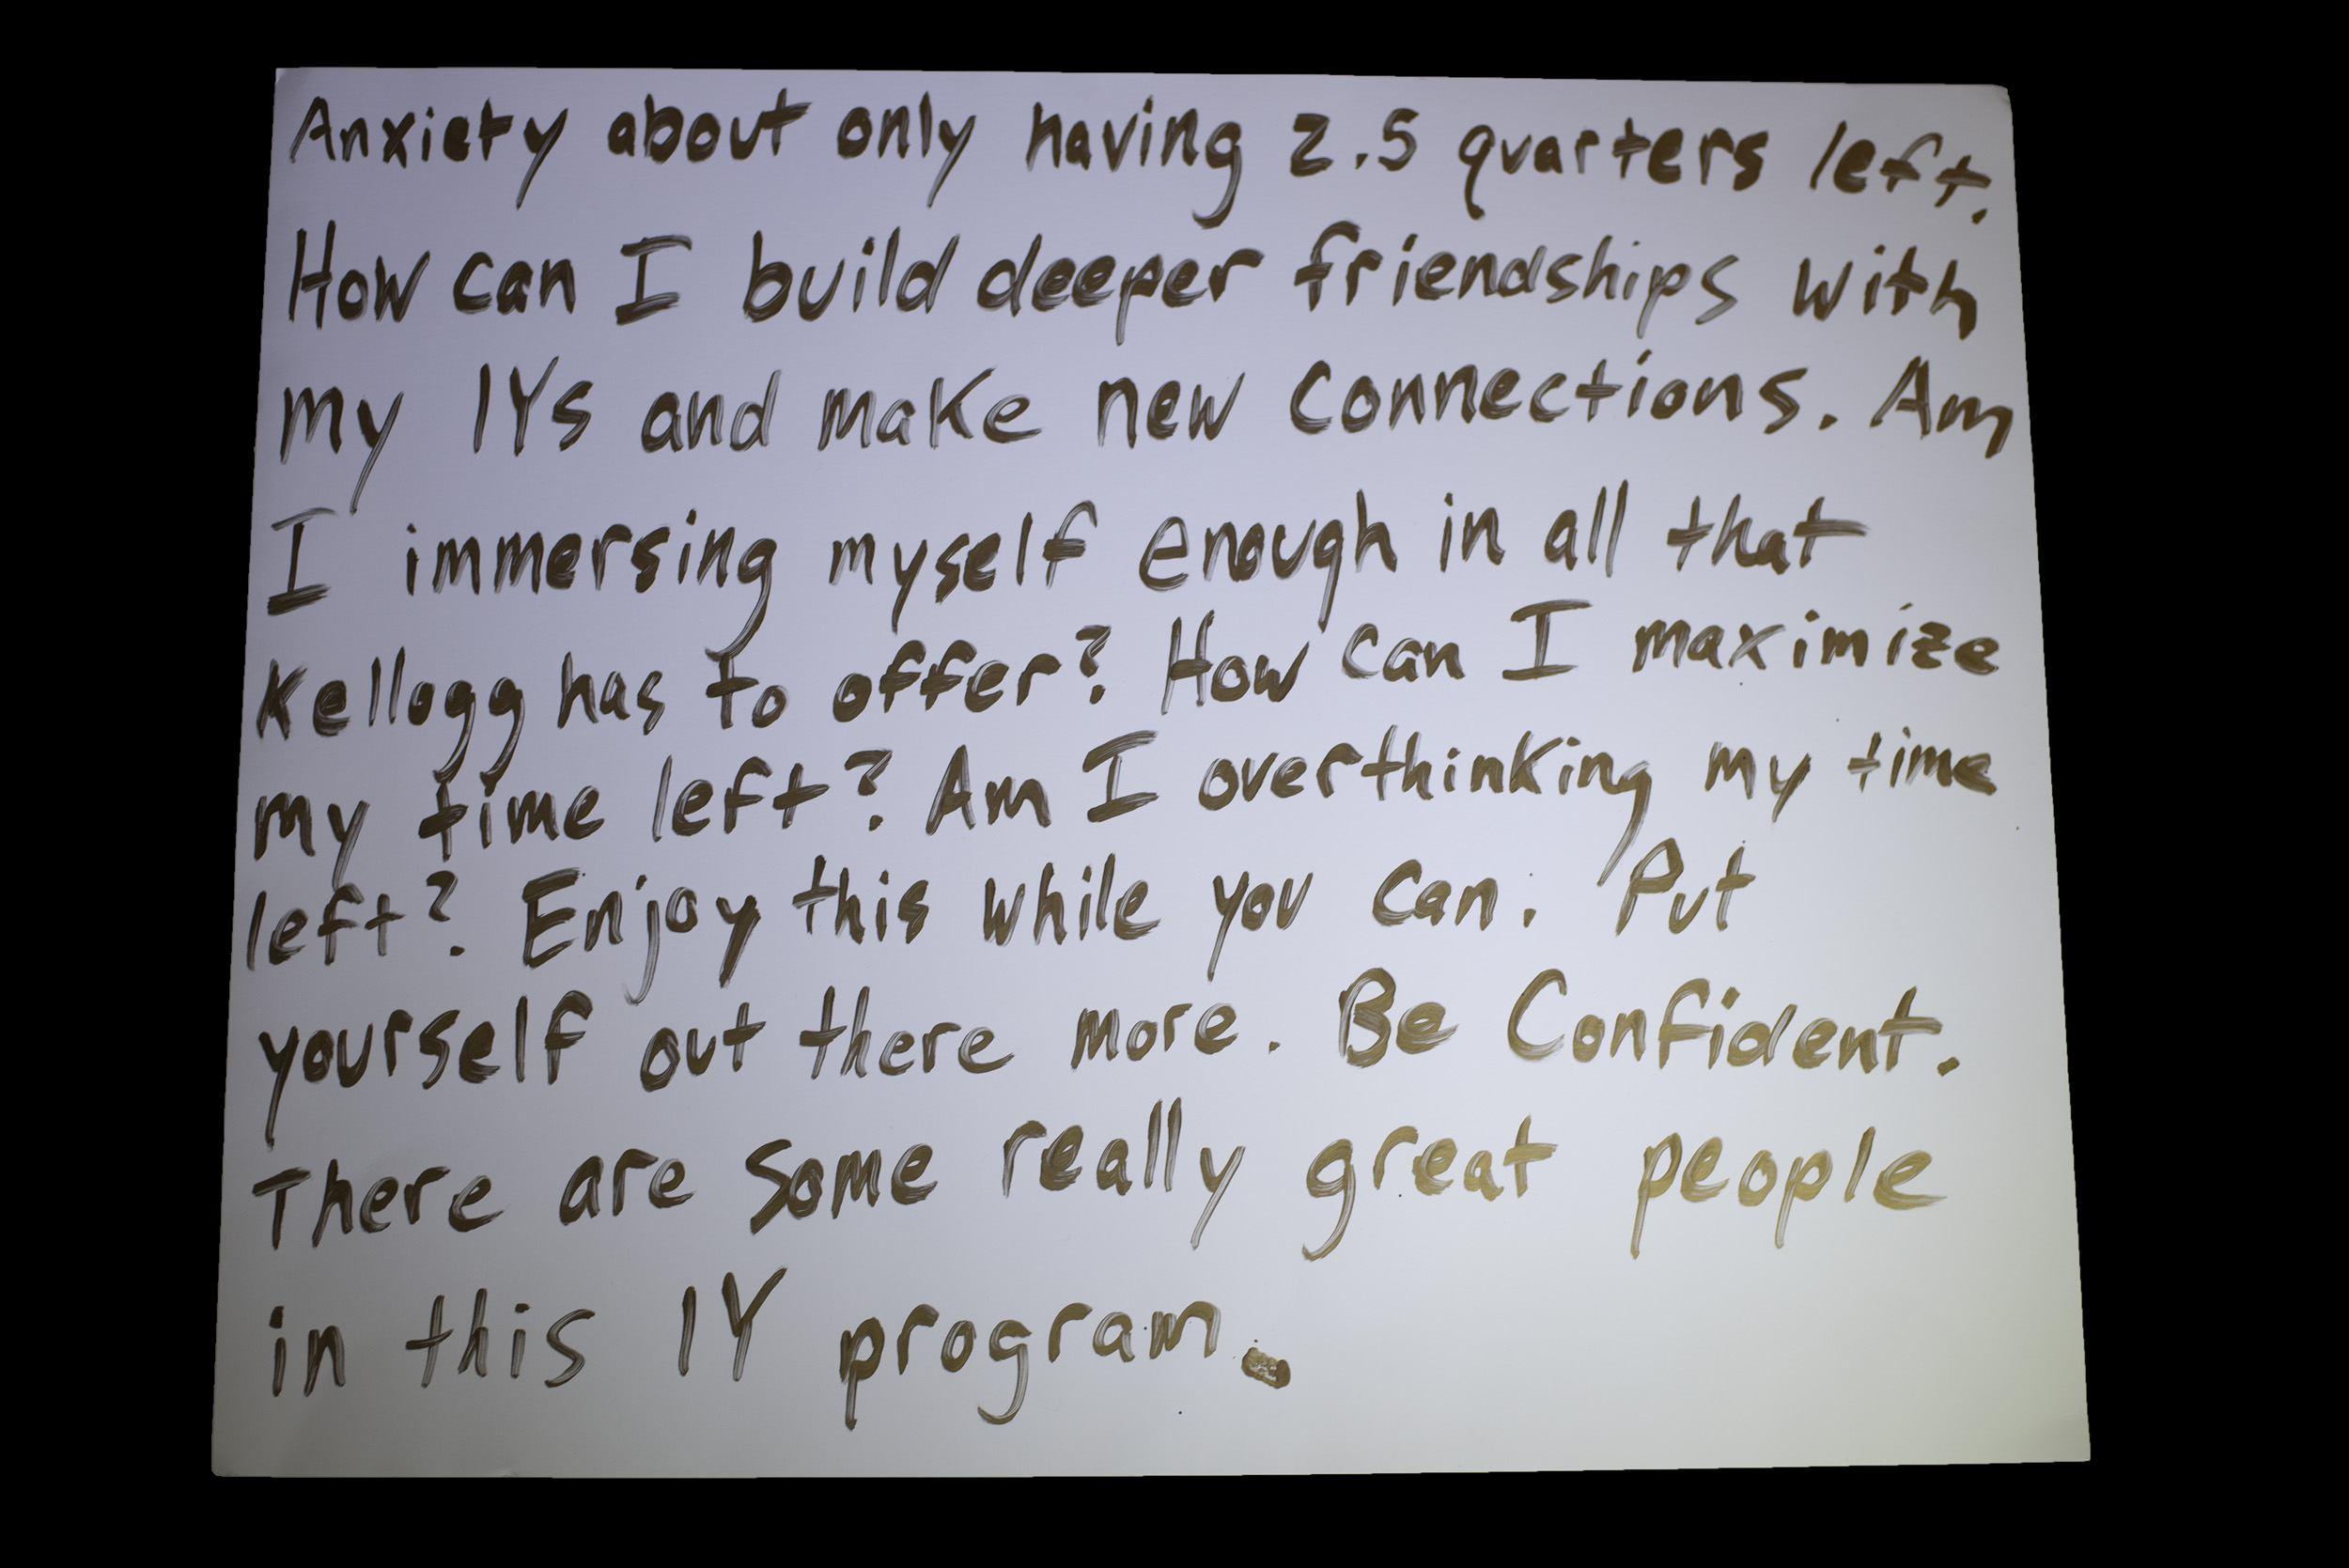 Anxiety about only having 2.5 quarters left.
How can I build deeper friendships with
my 1Ys and make new connections. Am
I immersing myself enough in all that
Kellogg has to offer? How can I maximize
my time left? Am I overthinking my time
left? Enjoy this while you can. Put
yourself out there more. Be Confident.
There are some really great people
in this 1Y program.